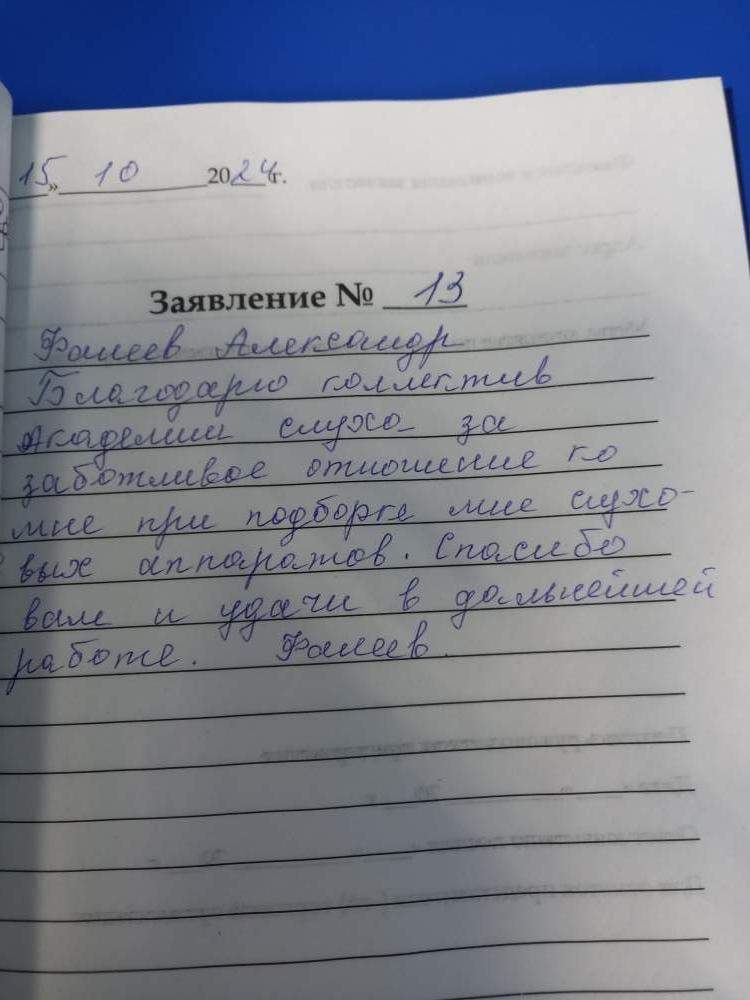 15 » 10 2024 г.
Заявление № 13
Фалеев Александр
Благодарю коллектив
Академии слуха за
заботливое отношение ко
мне при подборке мне слухо-
вых аппаратов. Спасибо
вам и удачи в дальнейшей
работе. Фалеев.